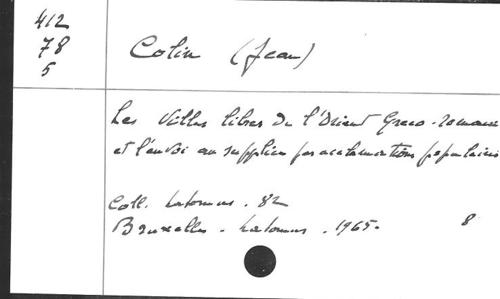 412
78
5
Colin (Jean)
Les Villes libres de l'Orient Greco-romain
et l'envoi au supplice par acclamations populaires
Coll. Latomus . 82
Bruxelles - Latomus . 1965. 8